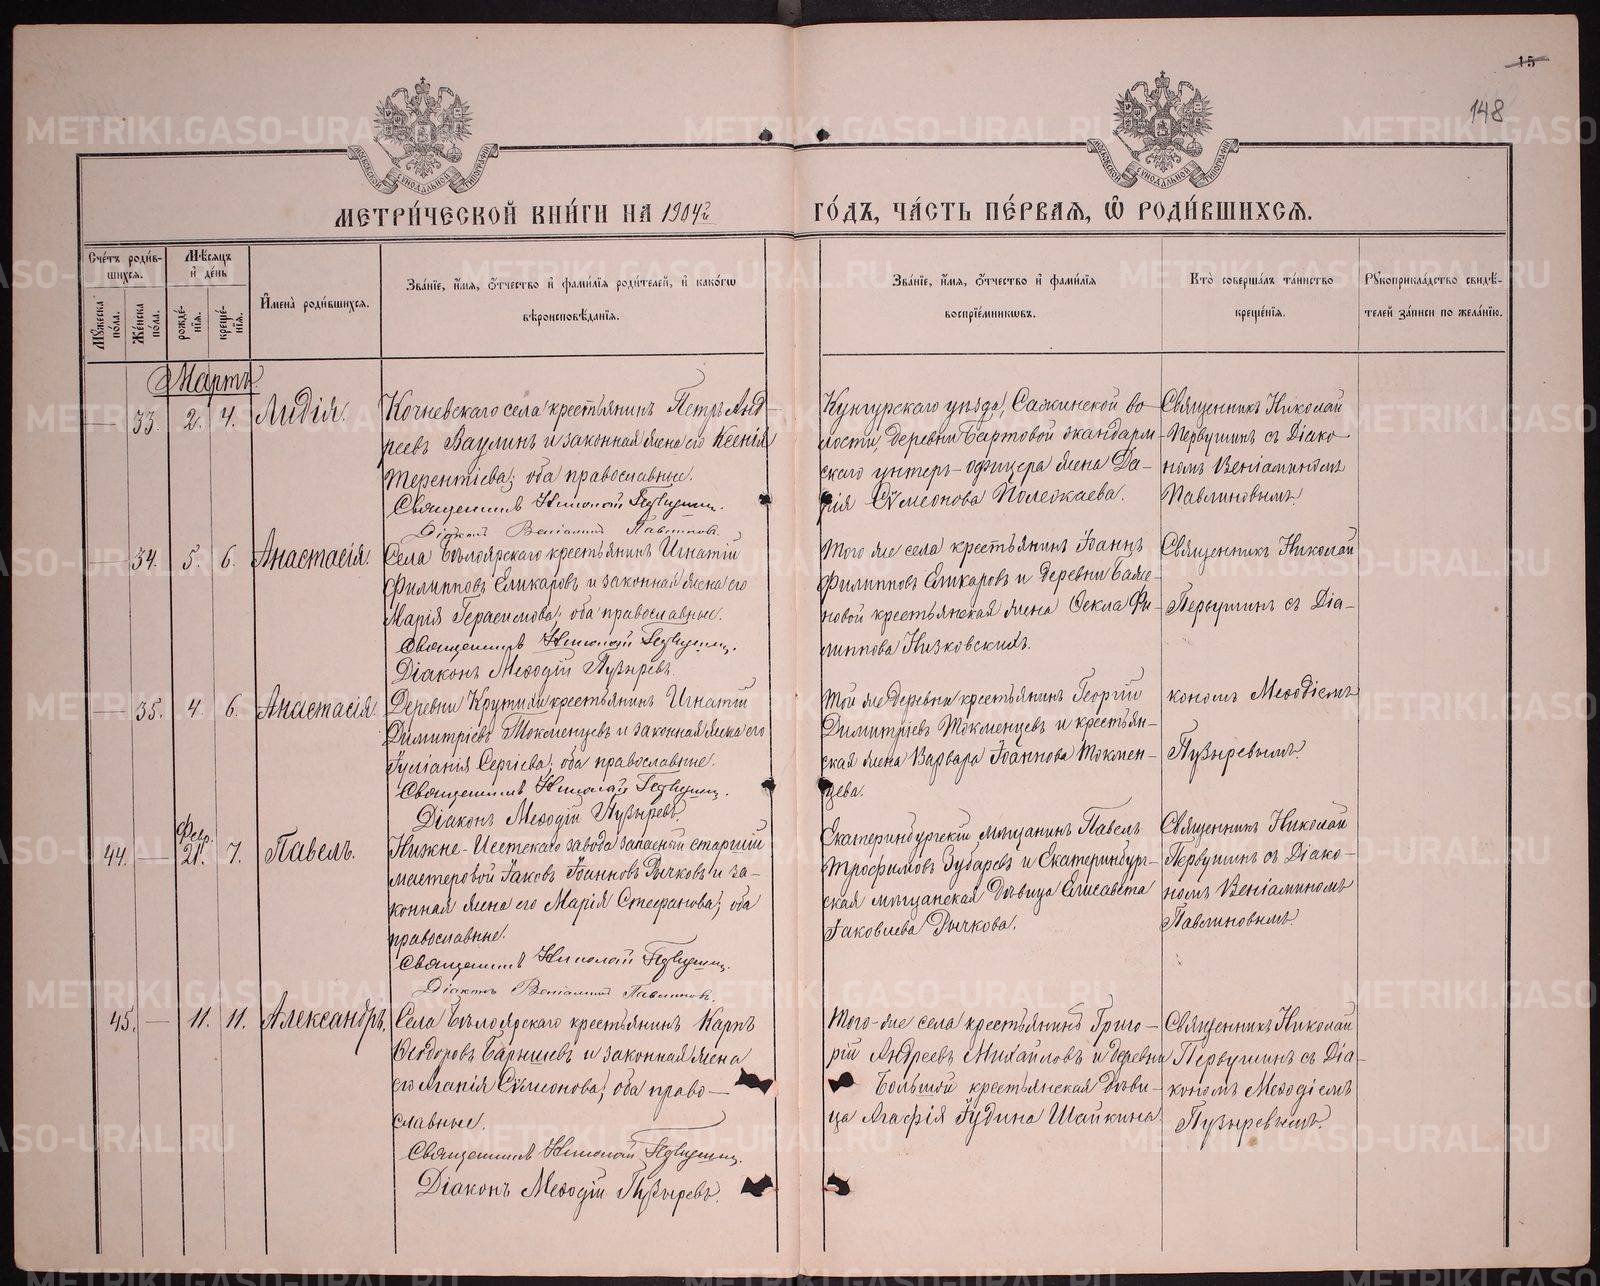 15
148
МОСКОВСКОЙ СѴНОДАЛЬНОЙ ТИПОГРАФИИ
МОСКОВСКОЙ СѴНОДАЛЬНОЙ ТИПОГРАФИИ
МЕТРИ́ЧЕСКОЙ КНИ́ГИ НА 1904й
ГО́ДЪ, ЧА́СТЬ ПЕ́РВАЯ, Ѽ РОДИ́ВШИХСЯ.
Сче́тъ роди́в-
шихся.
Мѣсяцъ
и де́нь
Мꙋжеска по́ла.
Же́нска по́ла.
рожде́-
нїя.
креще́-
нїя.
Имена̀ роди́вшихся.
Зва́нїе, и́мя, ѻ҆́тчество и фами́лїя роди́телей, и како́гѡ
вѣроисповѣ́данїя.
Зва́нїе, и́мя, ѻ҆́тчество и фами́лїя
воспрїе́мникѡвъ.
Кто̀ соверша́лъ та́инство
креще́нїя.
Рꙋкоприкла́дство свидѣ́-
телей за́писи по жела́нїю.
Мартъ.
— 33. 2. 4. Лидія.
Кочневскаго села крестьянинъ Петръ Анд-
реевъ Ваулинъ и законная жена его Ксенія
Терентіева; оба православные.
Священникъ Николай Первушинъ.
Діаконъ Веніаминъ Павлиновъ.
Кунгурскаго уѣзда, Сажинской во-
лости, деревни Бартовой жандарм-
скаго унтеръ-офицера жена Да-
рія Сѵмеонова Полежаева.
Священникъ Николай
Первушинъ съ Діако-
номъ Веніаминомъ
Павлиновымъ.
— 34. 5. 6. Анастасія.
Села Бѣлоярскаго крестьянинъ Игнатій
Филипповъ Еликаровъ и законная жена его
Марія Герасимова; оба православные.
Священникъ Николай Первушинъ.
Діаконъ Меѳодій Пузыревъ.
Того же села крестьянинъ Іоаннъ
Филипповъ Еликаровъ и деревни Баже-
новой крестьянская жена Ѳекла Фи-
липпова Низковскихъ.
Священникъ Николай
Первушинъ съ Діа-
— 35. 4. 6. Анастасія.
Деревни Крутихи крестьянинъ Игнатій
Димитріевъ Токменцевъ и законная жена его
Іуліанія Сергіева; оба православные.
Священникъ Николай Первушинъ.
Діаконъ Меѳодій Пузыревъ.
Той же деревни крестьянинъ Георгій
Димитріевъ Токменцевъ и крестьян-
ская жена Варвара Іоаннова Токмен-
цева.
кономъ Меѳодіемъ
Пузыревымъ.
Февр.
44. — 21. 7. Павелъ.
Нижне-Исетскаго завода запасный старшій
мастеровой Іаковъ Іоанновъ Рычковъ и за-
конная жена его Марія Стефанова; оба
православные.
Священникъ Николай Первушинъ.
Діаконъ Веніаминъ Павлиновъ.
Екатеринбургскій мѣщанинъ Павелъ
Трофимовъ Зубаревъ и Екатеринбург-
ская мѣщанская дѣвица Елисавета
Іаковлева Рычкова.
Священникъ Николай
Первушинъ съ Діако-
номъ Веніаминомъ
Павлиновымъ.
45. — 11. 11. Александръ.
Села Бѣлоярскаго крестьянинъ Карпъ
Ѳеодоровъ Барышевъ и законная жена
его Агапія Сѵмеонова; оба право-
славные.
Священникъ Николай Первушинъ.
Діаконъ Меѳодій Пузыревъ.
Того-же села крестьянинъ Григо-
рій Андреевъ Михайловъ и деревни
Большой крестьянская дѣви-
ца Агафія Іудина Шайкина
Священникъ Николай
Первушинъ съ Діа-
кономъ Меѳодіемъ
Пузыревымъ.
METRIKI.GASO-URAL.RU